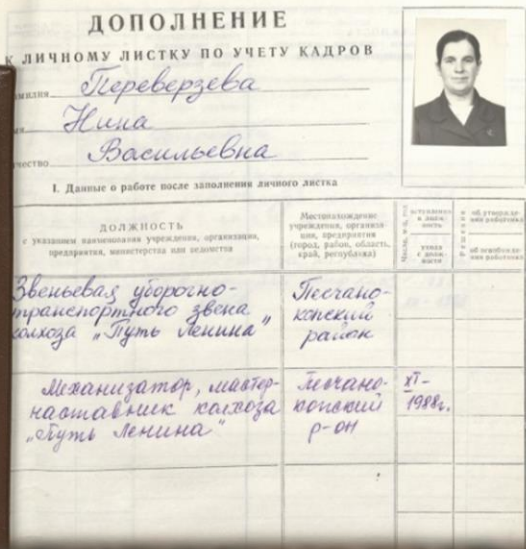 ДОПОЛНЕНИЕ
К ЛИЧНОМУ ЛИСТКУ ПО УЧЕТУ КАДРОВ
амилия Переверзева
мя Нина
чество Васильевна
I. Данные о работе после заполнения личного листка
ДОЛЖНОСТЬ
с указанием наименования учреждения, организации,
предприятия, министерства или ведомства
Местонахождение
учреждения, организа-
ции, предприятия
(город, район, область,
край, республика)
об утвержде-
нии работника
об освобожде-
нии работника
Звеньевая уборочно-
транспортного звена
колхоза „Путь Ленина"
Песчано-
копский
район
Механизатор, мастер-
наставник колхоза
„Путь Ленина"
Песчано-
копский
р-он
XI-
1988г.